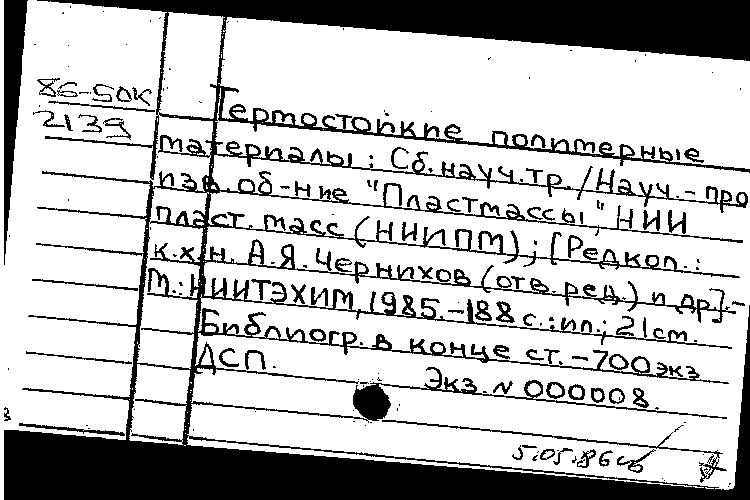 86-50К
2139
Термостойкие полимерные
материалы: Сб. науч. тр. / Науч.-про
изв. об-ние "Пластмассы", НИИ
пласт. масс (НИИПМ); [Редкол.:
к.х.н. А.Я. Чернихов (отв. ред.) и др.]-
М.: НИИТЭХИМ, 1985.-188 с.: ил.; 21 см.
Библиогр. в конце ст. - 700 экз
ДСП. Экз. N 000008.
5.05.86